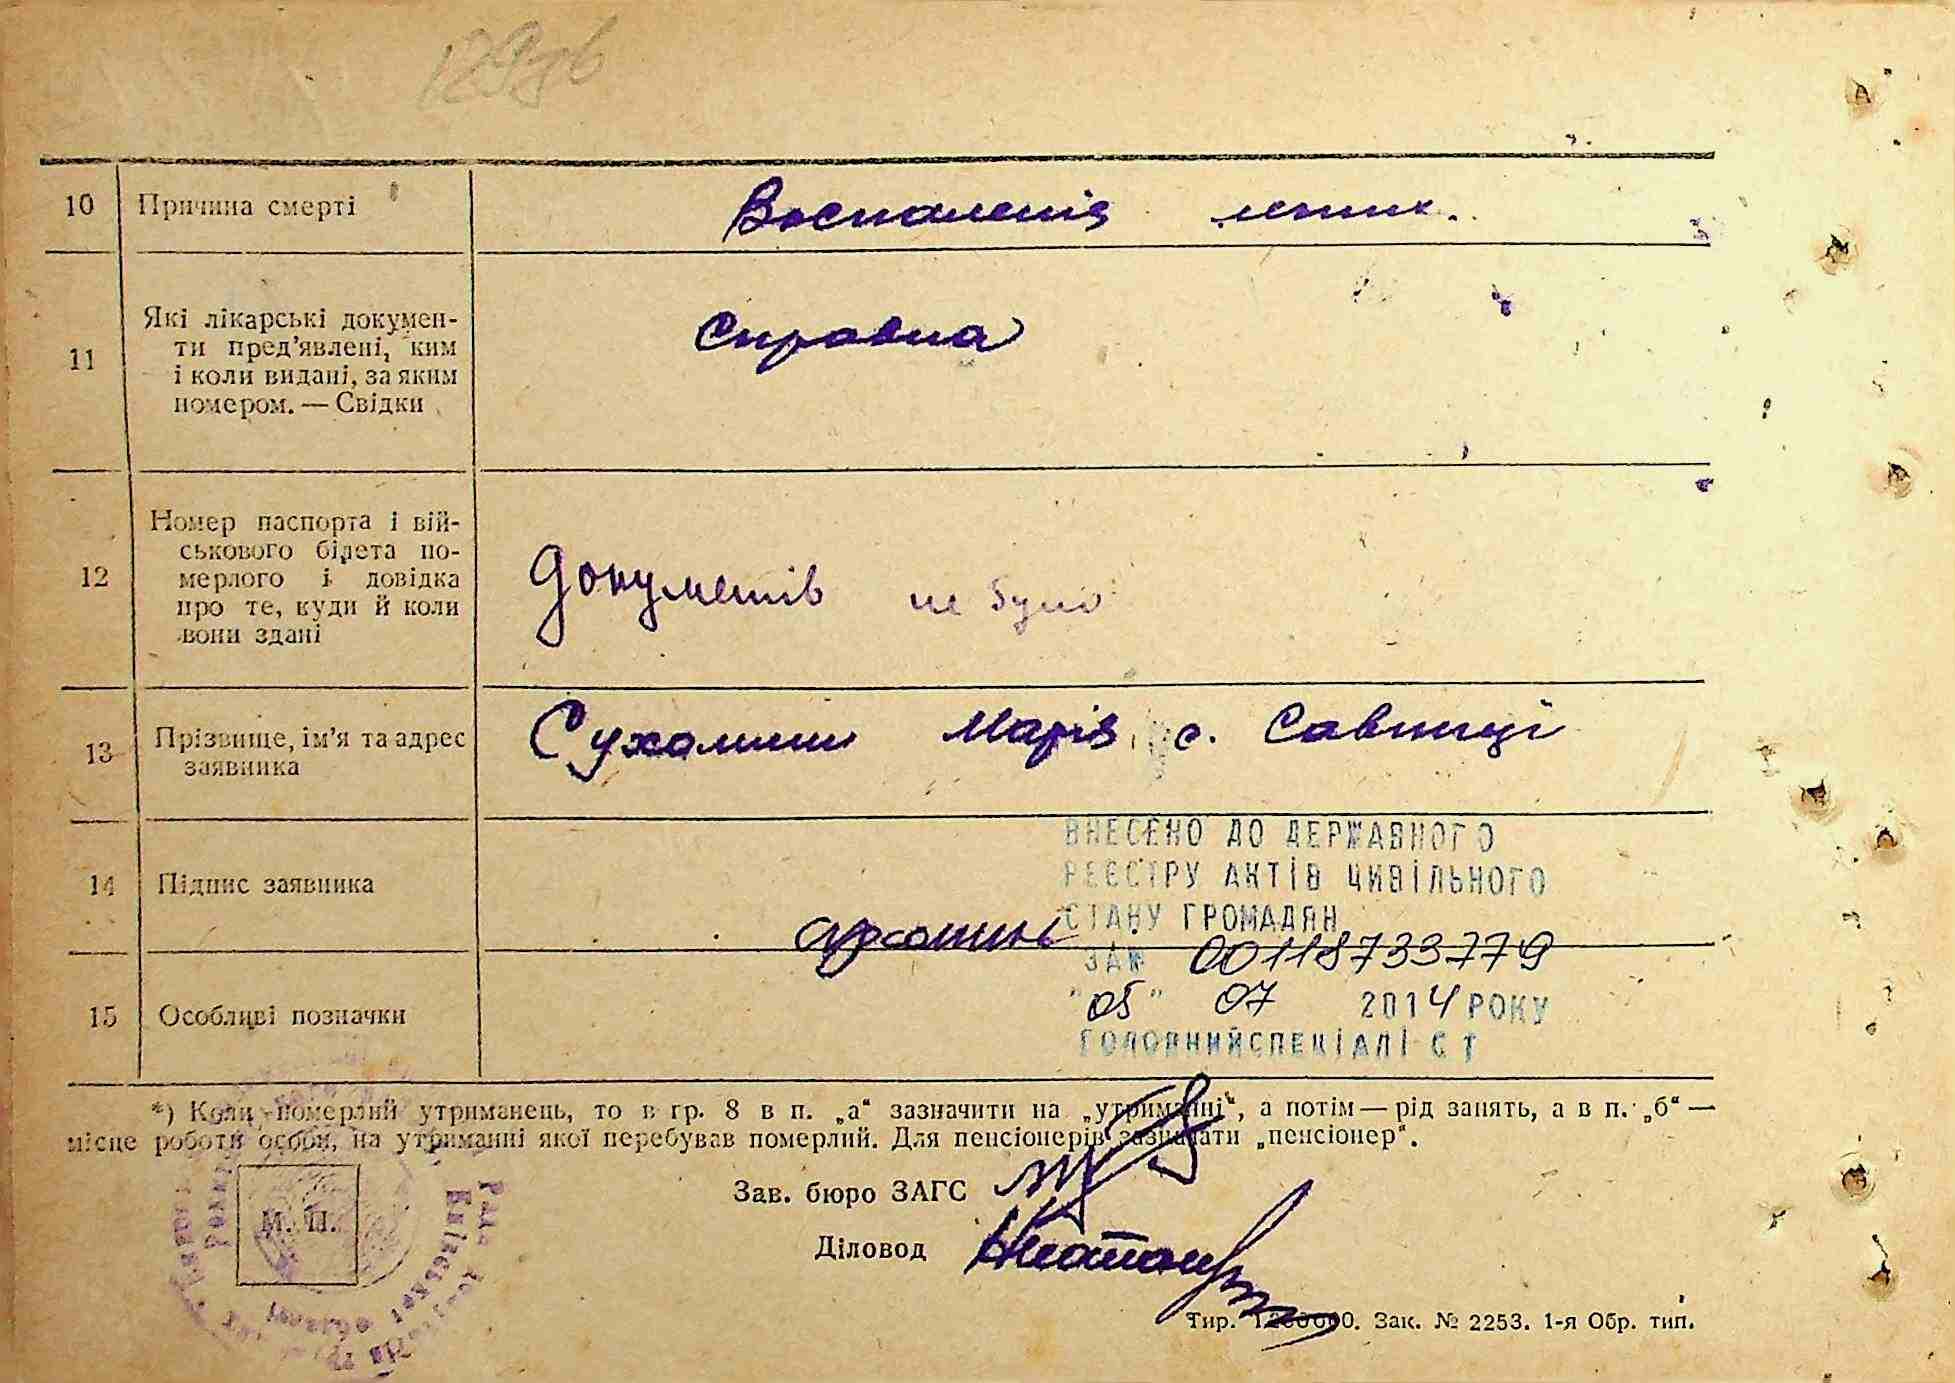 10 Причина смерті Воспаленія легких.
11 Які лікарські докумен-
ти пред'явлені, ким
і коли видані, за яким
номером. — Свідки
Справка
12 Номер паспорта і вій-
ськового білета по-
мерлого і довідка
про те, куди й коли
вони здані
Документів не було
13 Прізвище, ім'я та адрес
заявника
Сухомлин Марія с. Савинці
14 Підпис заявника
ВНЕСЕНО ДО ДЕРЖАВНОГО
РЕЄСТРУ АКТІВ ЦИВІЛЬНОГО
СТАНУ ГРОМАДЯН
ЗА № 00118733779
"05" 07 2014 РОКУ
ГОЛОВНИЙ СПЕЦІАЛІСТ
15 Особливі позначки
*) Коли померлий утриманець, то в гр. 8 в п. „а“ зазначити на „утриманні“, а потім — рід занять, а в п. „б“ —
місце роботи особи, на утриманні якої перебував померлий. Для пенсіонерів зазначати „пенсіонер“.
Зав. бюро ЗАГС
М. П.
Діловод
Київської
області
Тир. 1.200000. Зак. № 2253. 1-я Обр. тип.